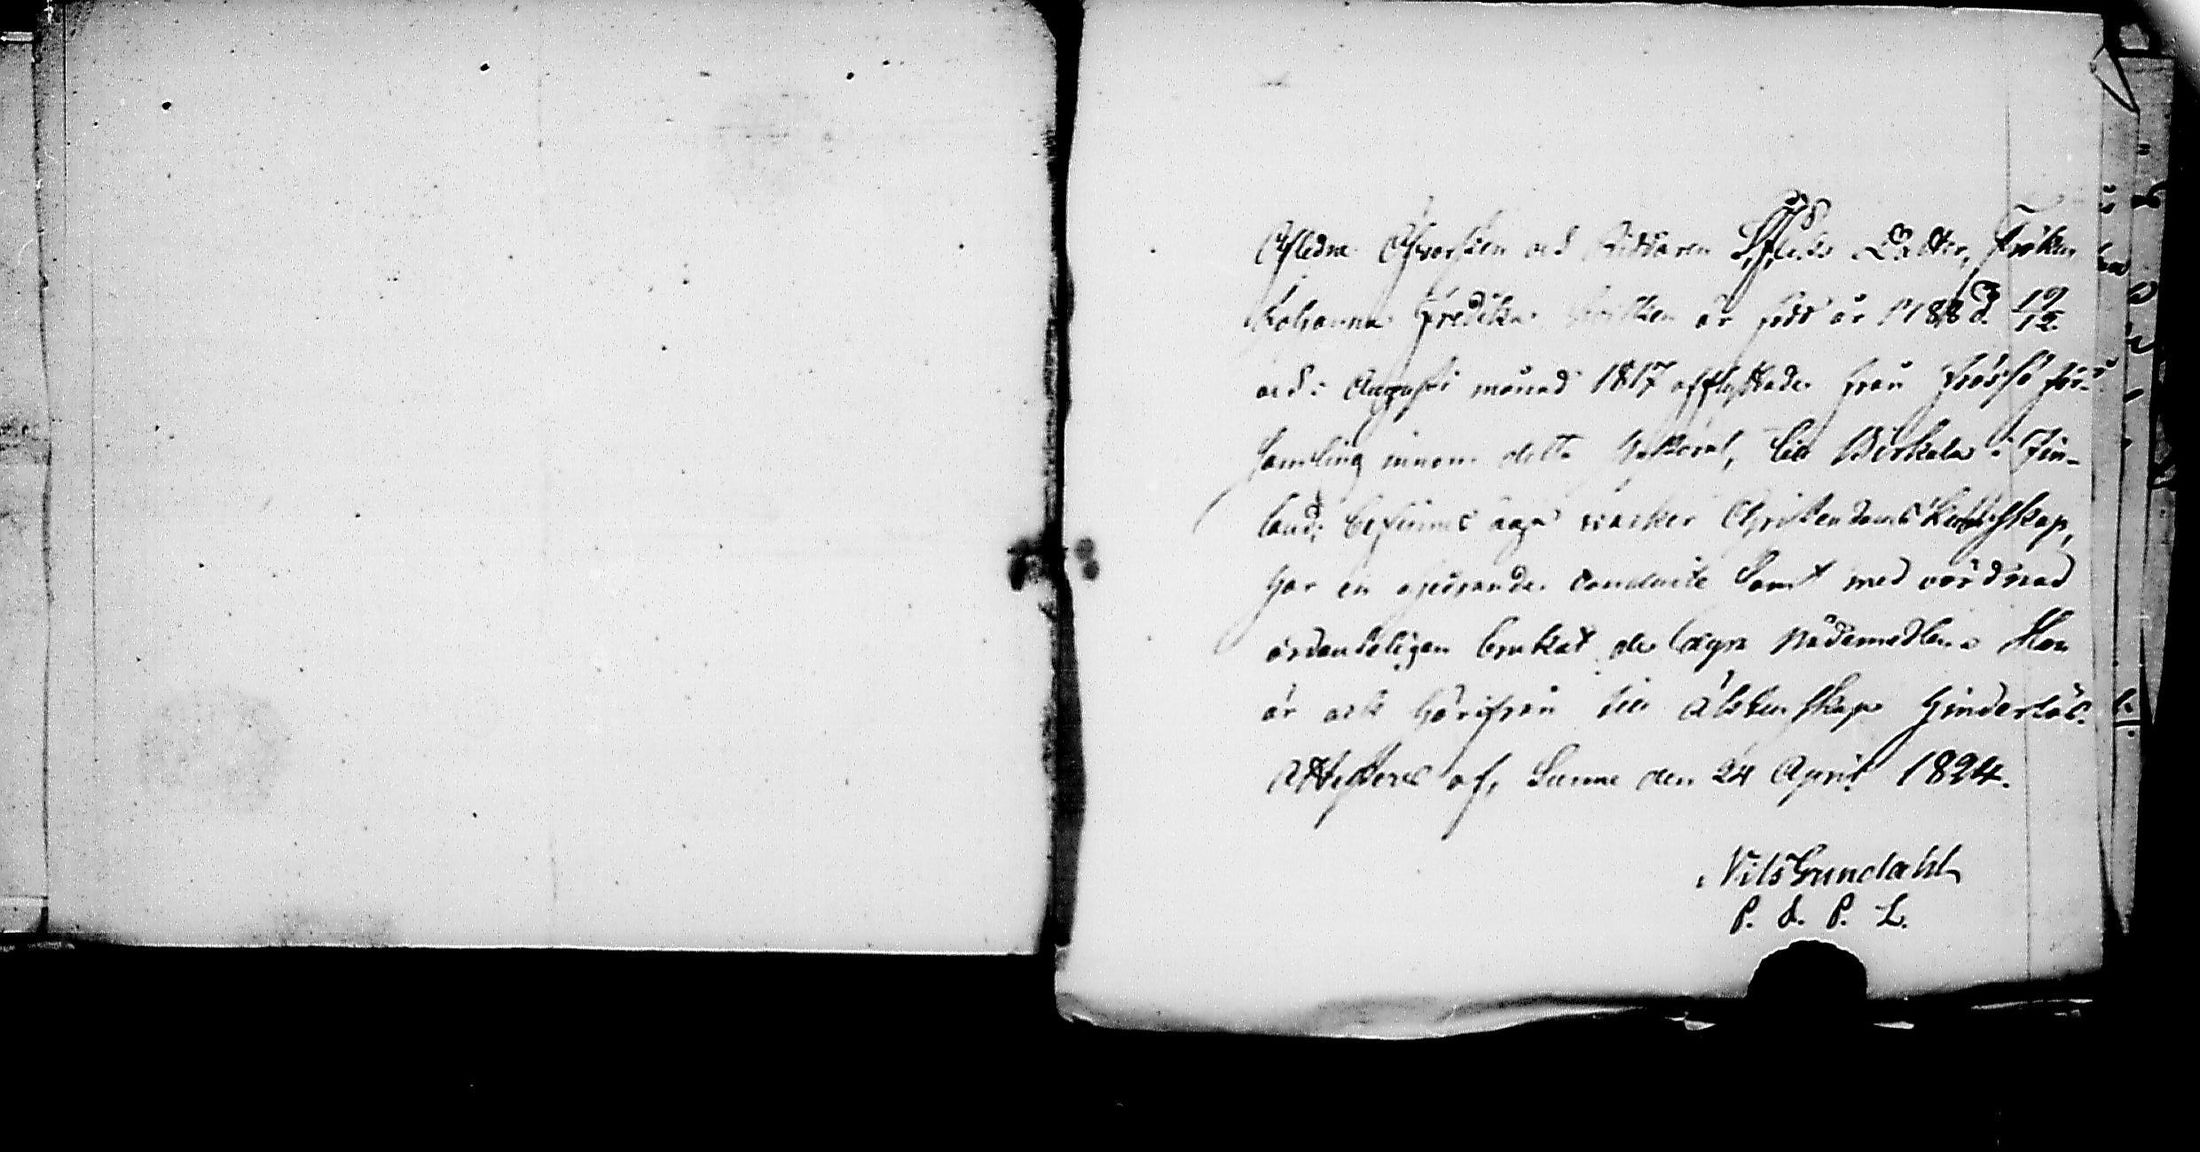 Afledne Öfversten och Riddaren Dotter, Fröken
Johanna Fredrika är född år 1788 d. 19/12
och i Augusti månad 1817 afflyttade från Frösö för-
samling innom detta Pastorat, till Birkala i Fin-
land; befinnes äga vacker Christendoms Kundskap,
har en conduite samt med vördnad
ordenteligen brukat de dyra Nådemedlen. Hon
är ock härifrån till äktenskap hinderlös.
Attesteras af, Sunne den 24 April 1824.
Nils Grundahl
P. L.